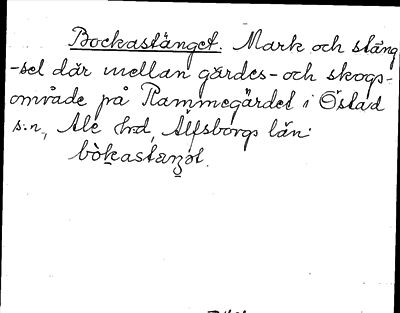 Bockastänget. Mark och stäng
-sel där mellan gärdes- och skogs-
område på Rammegärdet i Östad
s:n, Ale hrd, Älfsborgs län:
bòkastæŋət.